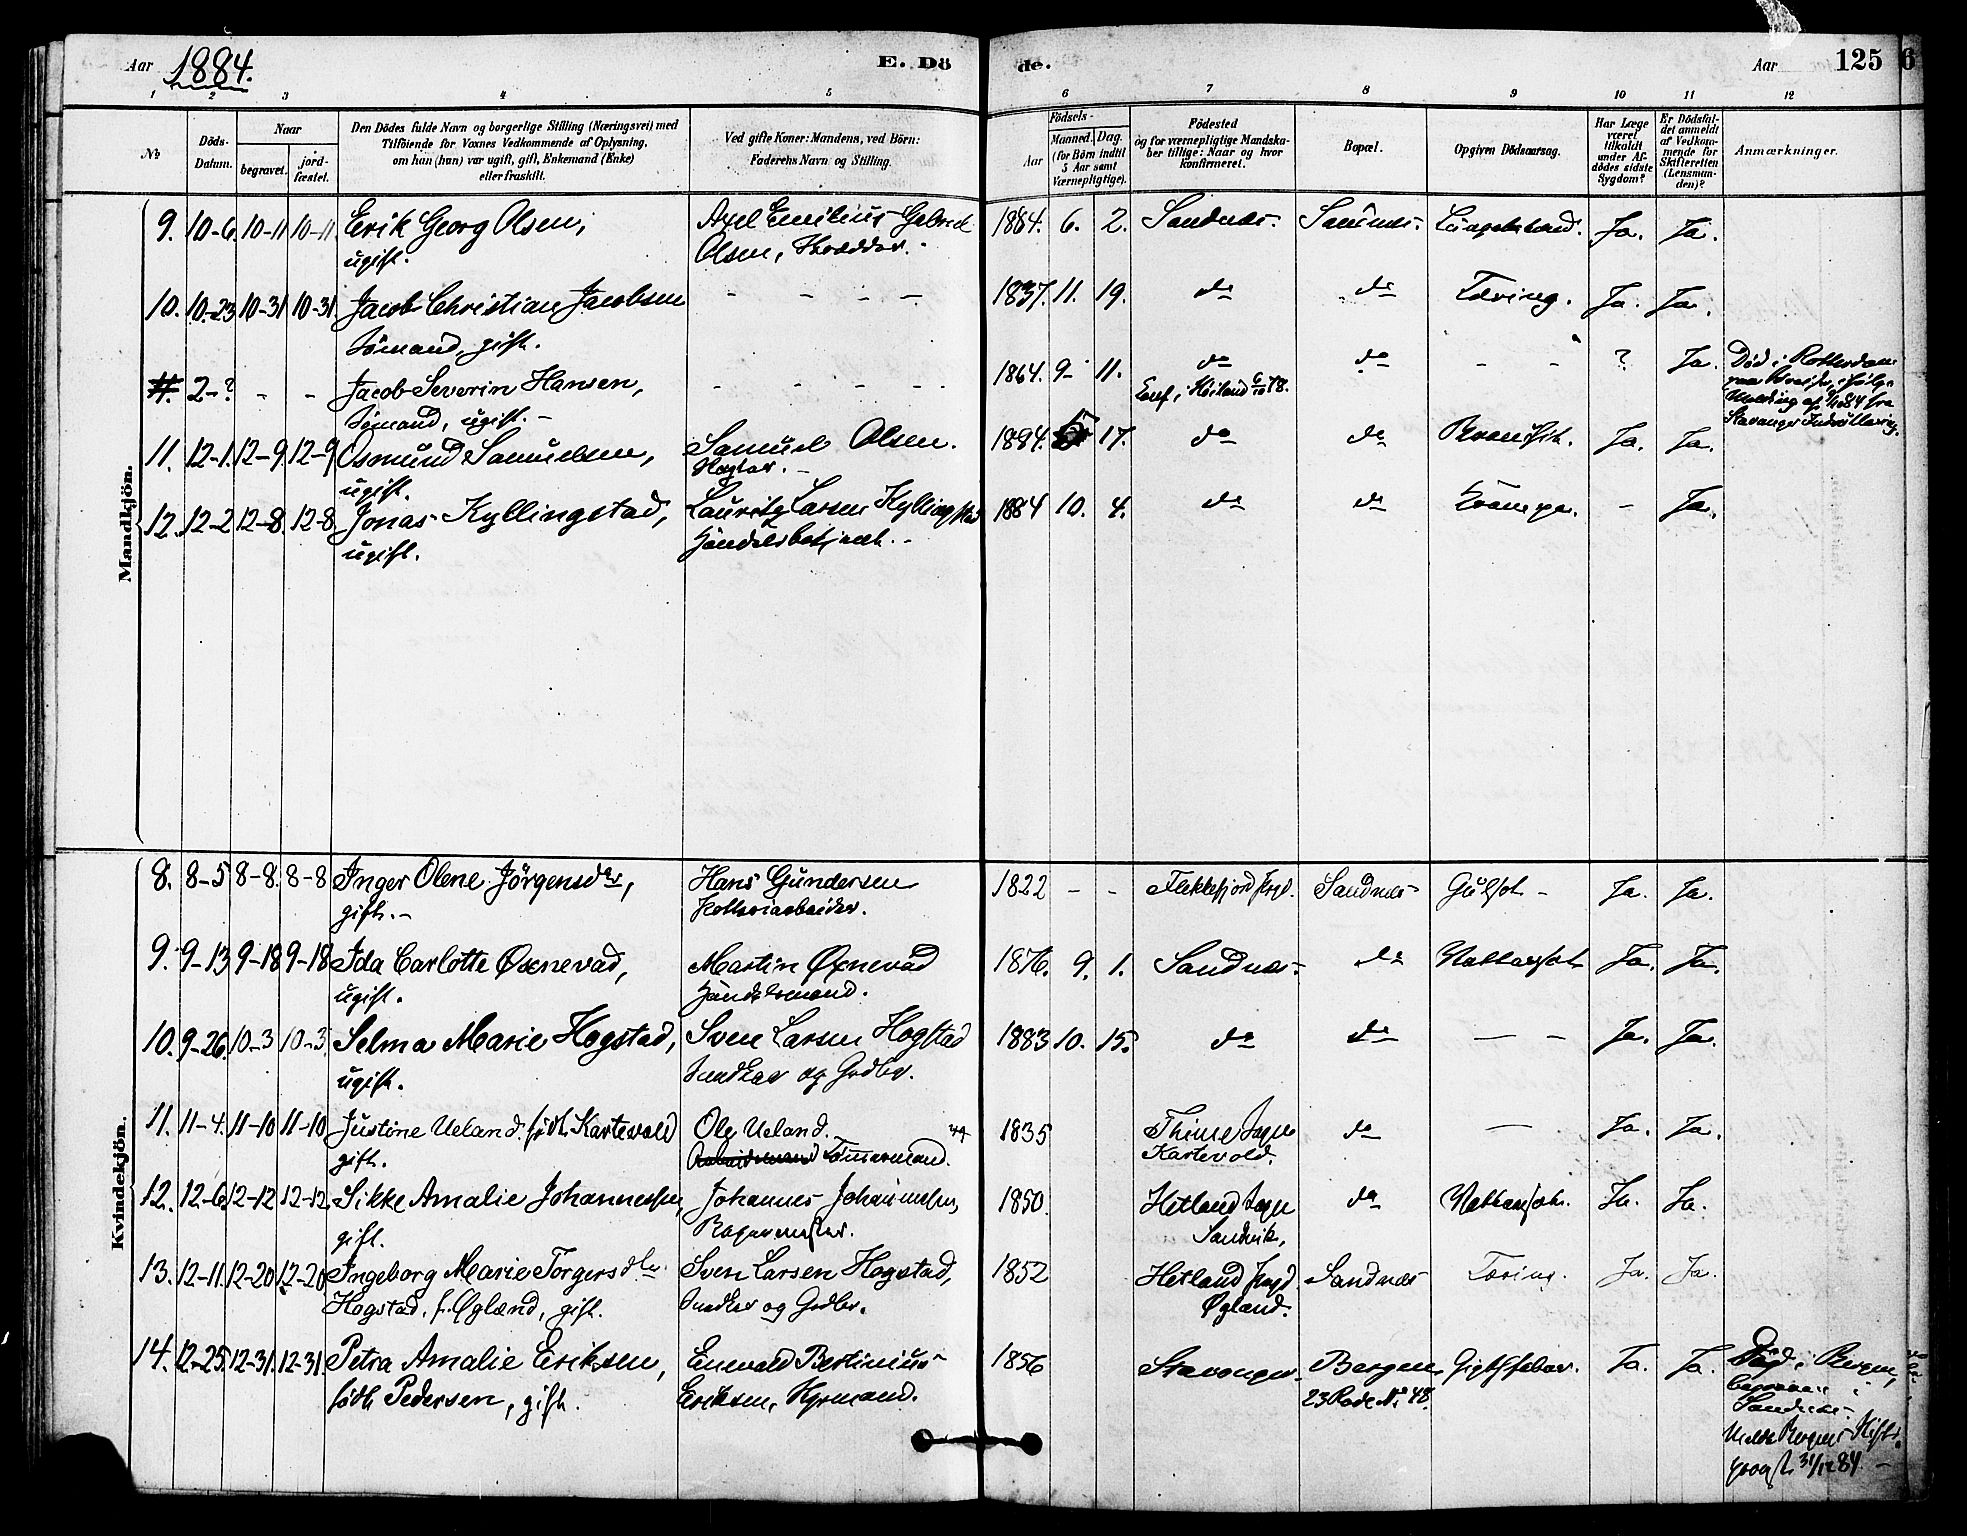 Aar 1884. E. Dö de. Aar 125 6
1 2 3 4 5 6 7 8 9 10 11 12
№ Döds-Datum. Naar begravet. jord-fæstet. Den Dödes fulde Navn og borgerlige Stilling (Næringsvei) med Tilföiende for Voxnes Vedkommende af Oplysning, om han (hun) var ugift, gift, Enkemand (Enke) eller fraskilt. Ved gifte Koner: Mandens, ved Börn: Faderens Navn og Stilling. Födsels- Aar Maaned. Dag. (for Börn indtil 5 Aar samt Værnepligtige). Födested og for værnepligtige Mandskaber tillige: Naar og hvor konfirmeret. Bopæl. Opgiven Dödsaarsag. Har Læge været tilkaldt under Afdödes sidste Sygdom? Er Dödsfaldet anmeldt af Vedkommende for Skifteretten (Lensmanden)? Anmærkninger.
Mandkjön.
9. 10-6. 10-11 10-11. Erik Georg Olsen, Axel Emilius Gabriel 1884. 6. 2. Sandnæs. Sandnæs. Ja. Ja.
ugift. Olsen, Skrædder.
10. 10-23 10-31 10-31. Jacob Christian Jacobsen - - - - 1837. 11. 19. do do Tæring. Ja. Ja.
Sömand, gift.
#. 2-? - - Jacob Severin Hansen, - - - - 1864. 9- 11. do do - - ? Ja. Död i Rotterdam
Sömand, ugift. - Conf. i Höiland 6/10 78.
Stavanger
11. 12-1. 12-9. 12-9 Osmund Samuelsen, Samuel Olsen. 1884. 5 17. do do Ja. Ja.
ugift.
12. 12-2 12-8. 12-8. Jonas Kyllingstad, Lauritz Larsen Kyllingstad 1884 10. 4. do do Krampe. - Ja.
ugift. Handelsbetjent.
Kvindekjön.
8. 8-5 8-8. 8-8 Inger Olene Jörgensdr, Hans Gundersen 1822 - - Flekkefjord Sandnæs Gulsot - Ja. Ja.
gift. - Potteriarbeider.
9. 9-13 9-18 9-18 Ida Carlotte Øxnevad, Martin Øxnevad 1876. 9. 1. Sandnæs. do Ja. Ja.
ugift. Handelsmand.
10. 9-26. 10-3 10-3. Selma Marie Hogstad, Sven Larsen Hogstad 1883 10. 15. do do - - Ja. Ja.
ugift. Snedker og Gdbr.
11. 11-4. 11-10 11-10 Justine Ueland. födt Kartevold Ole Ueland. 1835 Thime Sogn do - Ja. Ja.
gift. Tömmermand. Kartevold.
12. 12-6. 12-12 12-12. Sikke Amalie Johannessen, Johannes Johannessen, 1850. Hetland Sogn do Ja. Ja.
gift. Bagermester. Sandvik,
13. 12-11. 12-20 12-20 Ingeborg Marie Torgersdtr Sven Larsen Hogstad, 1852 Hetland Sandnæs Tæring. Ja. Ja.
Hogstad, f. Øgland, gift. Snedker og Gdbr. Øgland.
14. 12-25. 12-31. 12-31. Petra Amalie Eriksen, Enevald Bertinius 1856 Stavanger. Bergen Gigtfeber. Ja. Ja. Död i Bergen,
födt Pedersen, gift. Eriksen, Styrmand. 23 Rode No 48. begravet i
Sandnæs.
31/12 84. -